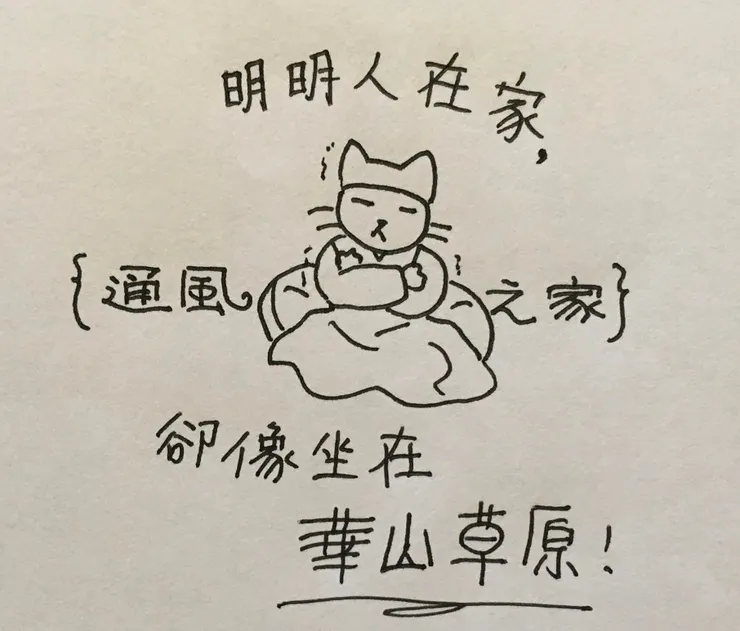 明明人在家,
{通風之家}
卻像坐在
華山草原!